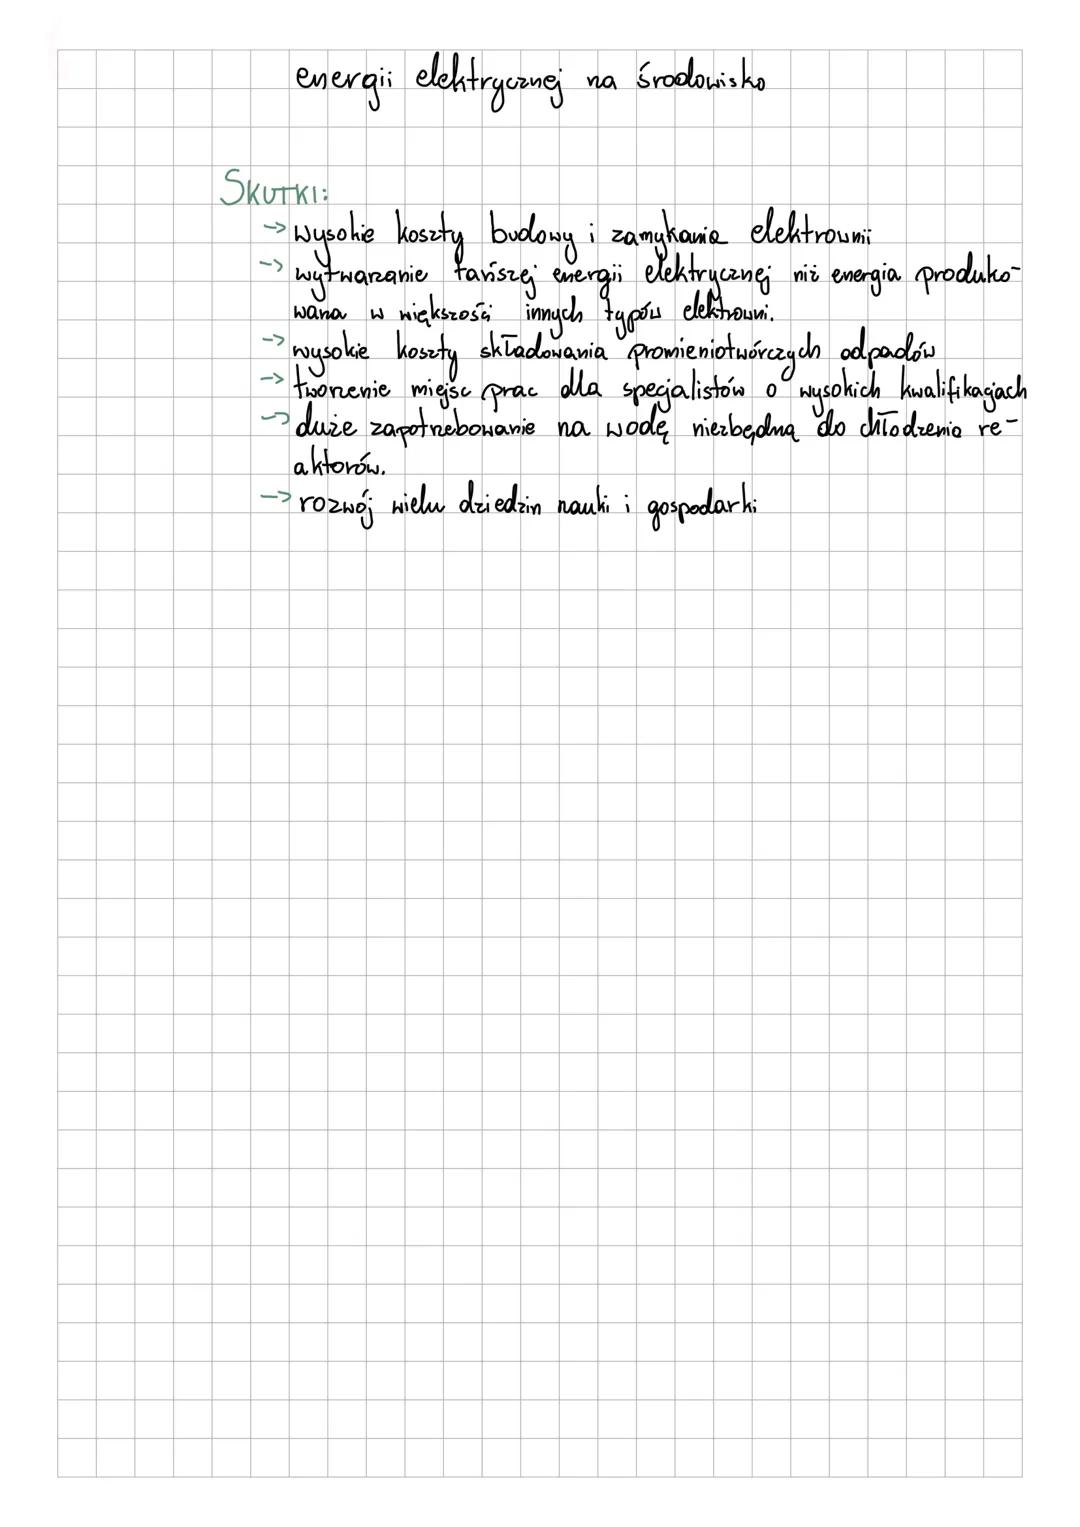 energii elektrycznej na środowisko
SKUTKI:
-> wysokie koszty budowy i zamykania elektrownii
-> wytwarzanie tańszej energii elektrycznej niż energia produko-
wana w większości innych typów elektrowni.
-> wysokie koszty składowania promieniotwórczych odpadów
-> tworzenie miejsc prac dla specjalistów o wysokich kwalifikacjach
-> duże zapotrzebowanie na wodę niezbędną do chłodzenia re-
aktorów.
-> rozwój wielu dziedzin nauki i gospodarki